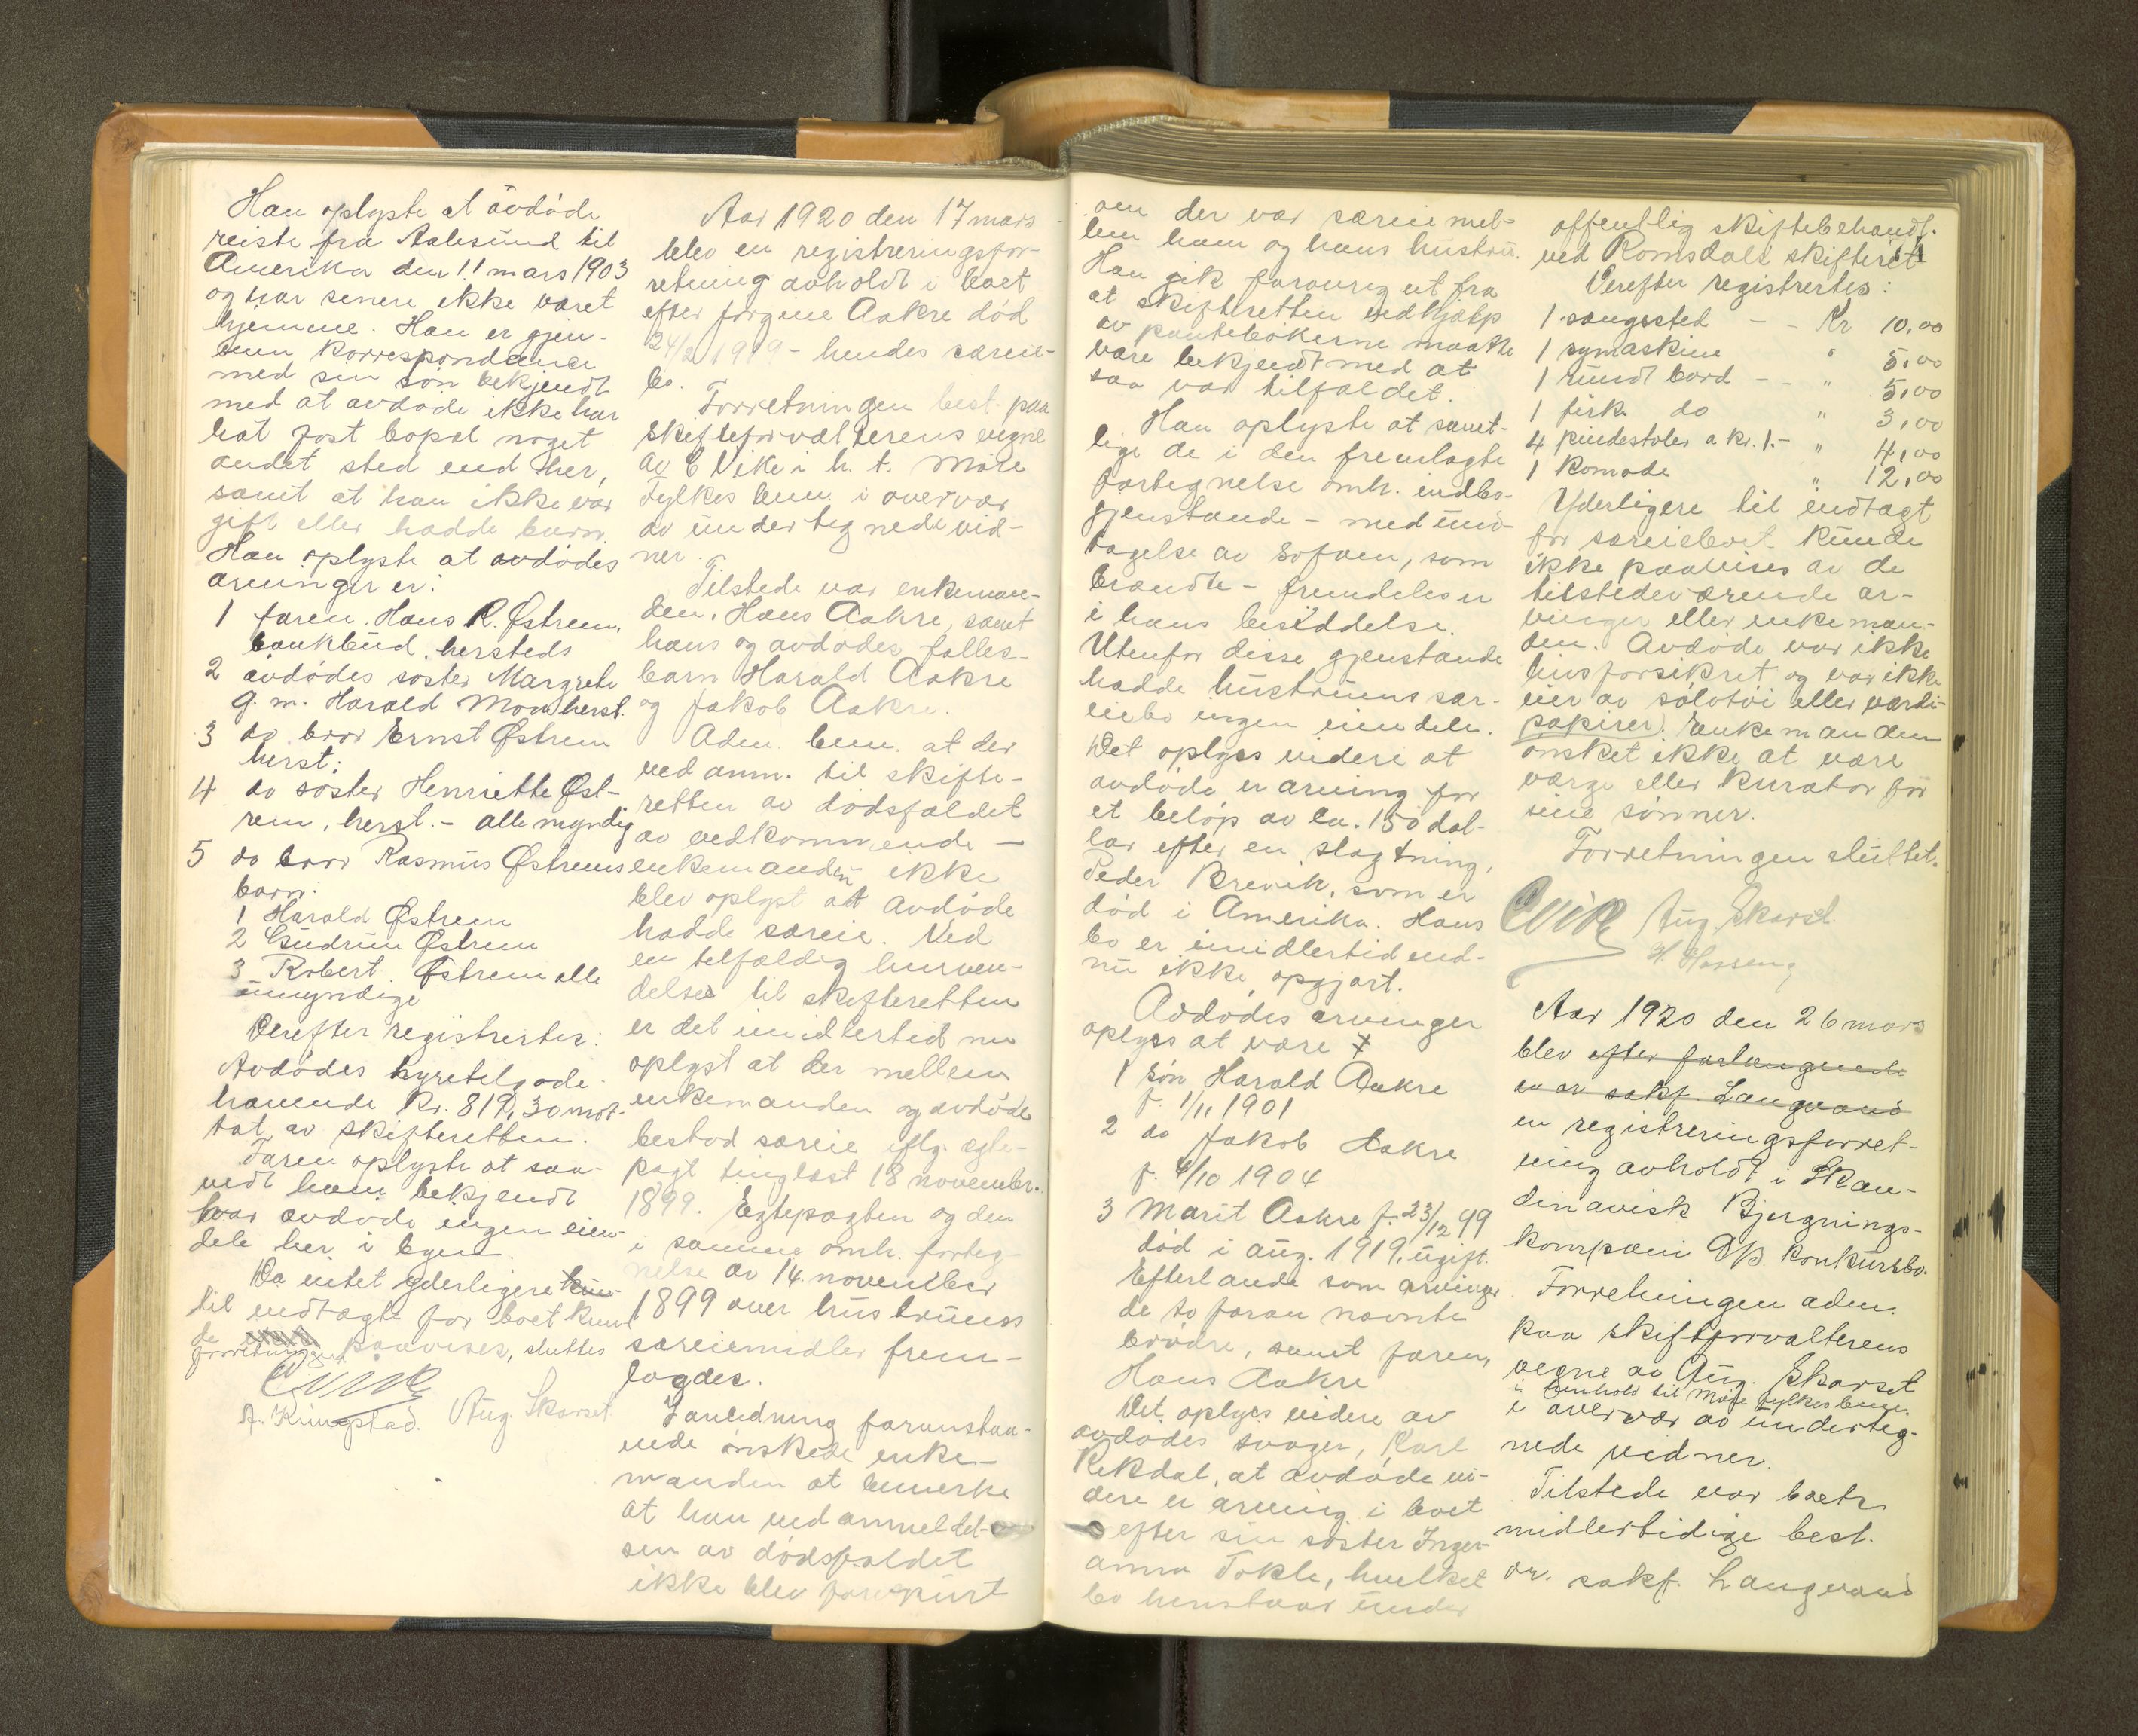 Han oplyste at avdöde
reiste fra Aalesund til
Amerika den 11 mars 1903
og har senere ikke været
hjemme. Han er gjen-
nem korrespondance
med sin sön bekjendt
med at avdöde ikke har
hat fast bopæl noget
andet sted end her,
samt at han ikke var
gift eller hadde barn.
Han oplyste at avdödes
arvinger er:
1 faren Hans R. Østrem,
bankbud, hersteds
2 avdödes söster Margrete
g. m. Harald Moa herst.
3 do bror Ernst Østrem
herst:
4 do söster Henriette Øst-
rem, herst. - alle myndig
5 do bror Rasmus Østrems
barn:
1 Harald Østrem
2 Gudrun Østrem
3 Robert Østrem alle
umyndige
Derefter registrertes:
Avdödes hyretilgode-
havende Kr. 819,30 mot-
tat av skifteretten.
Faren oplyste at saa-
vidt ham bekjendt
har avdöde ingen eien-
dele her i byen.
Da intet yderligere kun-
til indtægt for boet kun
de paavises, sluttes
forretningen
CVik
A. Kringstad. Aug. Skarset
Aar 1920 den 17 mars
blev en registreringsfor-
retning avholdt i boet
efter Jörgine Aakre död
24/2 1919 - hendes særeie-
bo.
Forretningen best. paa
skifteforvalterens vegne
av C Vik i h. t. Möre
Fylkes bem. i overvær
av undertegnede vid-
ner.
Tilstede var enkeman-
den, Hans Aakre, samt
hans og avdödes fælles-
barn Harald Aakre
og Jakob Aakre.
Adm. bem. at der
ved anm. til skifte-
retten av dödsfaldet
av vedkommende -
enkemanden ikke
blev oplyst at avdöde
hadde særeie. Ved
en tilfældig henven-
delse til skifteretten
er det imidlertid nu
oplyst at der mellem
enkemanden og avdöde
bestod særeie iflg. egte-
pagt tinglæst 18 novembr.
1899. Egtepagten og den
i samme omh.forteg-
nelse av 14. november
1899 over hustruens
særeiemidler frem-
lagdes.
I anledning foranstaa-
ende önskede enke-
manden at bemerke
at han ved anmeldel-
sen av dödsfaldet
ikke blev forespurt
om der var særeie mel-
lem ham og hans hustru.
Han gik forövrig ut fra
at skifteretten ved hjælp
av pantebökerne maatte
være bekjendt med at
saa var tilfældet.
Han oplyste at samt-
lige de i den fremlagte
fortegnelse omh. indbo-
gjenstande - med und-
tagelse av sofaen, som
brændte - fremdeles er
i hans besiddelse.
Utenfor disse gjenstande
hadde hustruens sær-
eiebo ingen eiendele.
Det oplyses videre at
avdöde er arving for
et belöp av ca. 150 dol-
lar efter en slægtning,
Peder Brevik, som er
död i Amerika. Hans
bo er imidlertid end-
nu ikke opgjort.
Avdödes arvinger
oplyses at være
1 Sön Harald Aakre
f. 1/11 1901
2 do Jakob Aakre
f. 4/10 1904
3 Marit Aakre f. 23/12 99
död i aug. 1919, ugift.
Efterlande som arvinger
de to foran nævnte
brödre, samt faren,
Hans Aakre
Det oplyses videre av
avdödes svoger, Karl
Rekdal, at avdöde vi-
dere er arving i boet
efter sin söster Inger-
anna Tokle, hvilket
bo henstaar under
offentlig skiftebehandl.
ved Romsdals skifteret
Derefter registrertes:
1 sengested - - Kr 10,00
1 symaskine " 5,00
1 rundt bord - - " 5,00
1 firk. do " 3,00
4 pindestoler a kr. 1.- " 4,00
1 Komode " 12,00
Yderligere til indtægt
for særeieboet kunde
ikke paavises av de
tilstedeværende ar-
vinger eller enkeman-
den. Avdöde var ikke
livsforsikret og var ikke
eier av sölvtöi eller værdi-
papirer. Enkemanden
önsket ikke at være
værge eller kurator for
sine sönner.
Forretningen sluttet.
CVik Aug. Skarset
H. Hasseng
Aar 1920 den 26 mars
blev efter forlangende
en av sakf. Langvand
en registreringsforret-
ning avholdt i Skan-
dinavisk Bjergnings-
kompani A/S konkursbo.
Forretningen adm.
paa skifteforvalterens
vegne av Aug. Skarset
i henhold til Möre fylkes bem.
i overvær av underteg-
nede vidner.
Tilstede var boets
midlertidige best.
or. sakf. Langvand